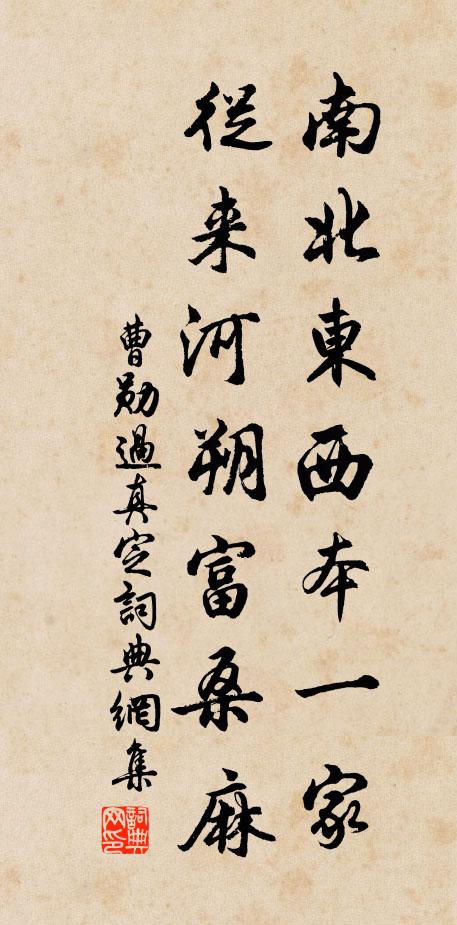 南北東西本一家
從来河朔富桑麻
曹勛過真定詞典網集
詞典网印